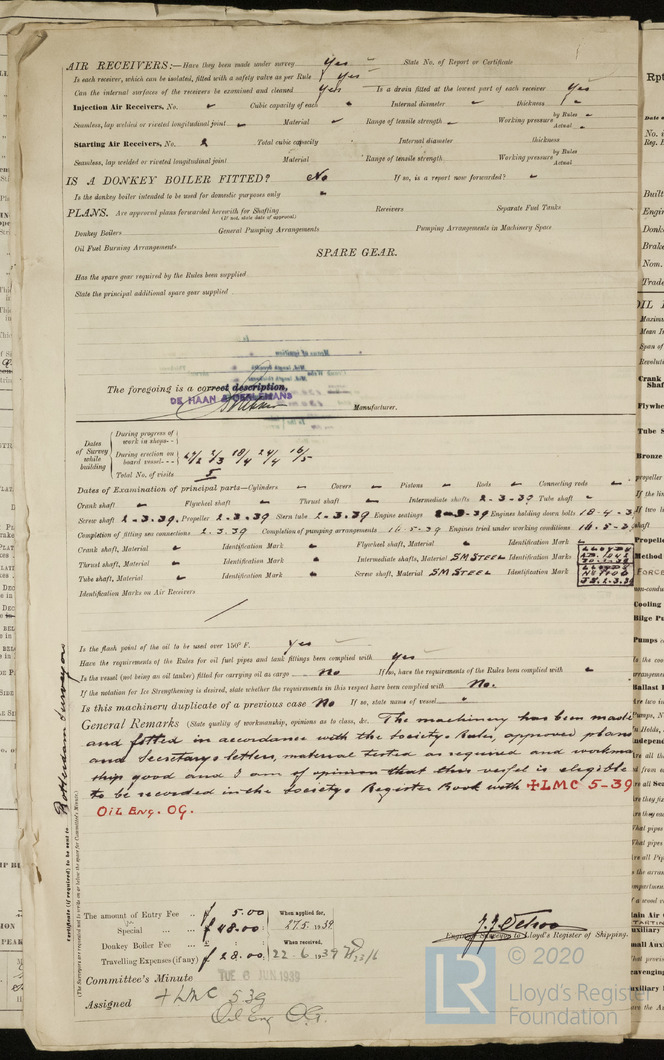 AIR RECEIVERS:—Have they been made under survey Yes State No. of Report or Certificate
Is each receiver, which can be isolated, fitted with a safety valve as per Rule Yes
Can the internal surfaces of the receivers be examined and cleaned Yes Is a drain fitted at the lowest part of each receiver Yes
Injection Air Receivers, No. Cubic capacity of each Internal diameter thickness
Seamless, lap welded or riveted longitudinal joint Material Range of tensile strength Working pressure by Rules Actual
Starting Air Receivers, No. Total cubic capacity Internal diameter thickness
Seamless, lap welded or riveted longitudinal joint Material Range of tensile strength Working pressure by Rules Actual
IS A DONKEY BOILER FITTED? No If so, is a report now forwarded?
Is the donkey boiler intended to be used for domestic purposes only
PLANS. Are approved plans forwarded herewith for Shafting Receivers Separate Fuel Tanks
(If not, state date of approval)
Donkey Boilers General Pumping Arrangements Pumping Arrangements in Machinery Space
Oil Fuel Burning Arrangements
SPARE GEAR.
Has the spare gear required by the Rules been supplied
State the principal additional spare gear supplied
The foregoing is a correct description,
DE HAAN & OERLEMANS
Manufacturer.
Dates of Survey while building
During progress of work in shops--
During erection on board vessel---
Total No. of visits 5
Dates of Examination of principal parts—Cylinders Covers Pistons Rods Connecting rods
Crank shaft Flywheel shaft Thrust shaft Intermediate shafts 2-3-39 Tube shaft
Screw shaft 2-3-39. Propeller 2-3-39 Stern tube 2-3-39 Engine seatings 2-3-39 Engines holding down bolts 18-4-3
Completion of fitting sea connections 2.3.39 Completion of pumping arrangements 16-5-39 Engines tried under working conditions 16.5-3
Crank shaft, Material Identification Mark Flywheel shaft, Material Identification Mark
Thrust shaft, Material Identification Mark Intermediate shafts, Material SM STEEL Identification Mark
Tube shaft, Material Identification Mark Screw shaft, Material SM STEEL Identification Mark
Identification Marks on Air Receivers
Is the flash point of the oil to be used over 150° F. Yes
Have the requirements of the Rules for oil fuel pipes and tank fittings been complied with Yes
Is the vessel (not being an oil tanker) fitted for carrying oil as cargo No If so, have the requirements of the Rules been complied with
If the notation for Ice Strengthening is desired, state whether the requirements in this respect have been complied with No.
Is this machinery duplicate of a previous case No If so, state name of vessel
General Remarks (State quality of workmanship, opinions as to class, &c. The machinery has been made
and fitted in accordance with the Society's Rules, approved plans
and Secretary's letters, material tested as required and workman
ship good and I am of opinion that this vessel is eligible
to be recorded in the Society's Register Book with +LMC 5-39
OIL ENG. OG.
Rotterdam Surveyors
Certificate (if required) to be sent to
(The Surveyors are requested not to write on or below the space for Committee's Minute.)
The amount of Entry Fee .. £ 5.00 When applied for,
Special .. £ 48.00 27.5.1939
Donkey Boiler Fee .. £ When received,
Travelling Expenses (if any) £ 28.00 22.6.1939
Engineer Surveyor to Lloyd's Register of Shipping.
Committee's Minute TUE 6 JUN 1939
Assigned +LMC 5 39
Oil Eng O.G.
LR
© 2020
Lloyd's Register
Foundation